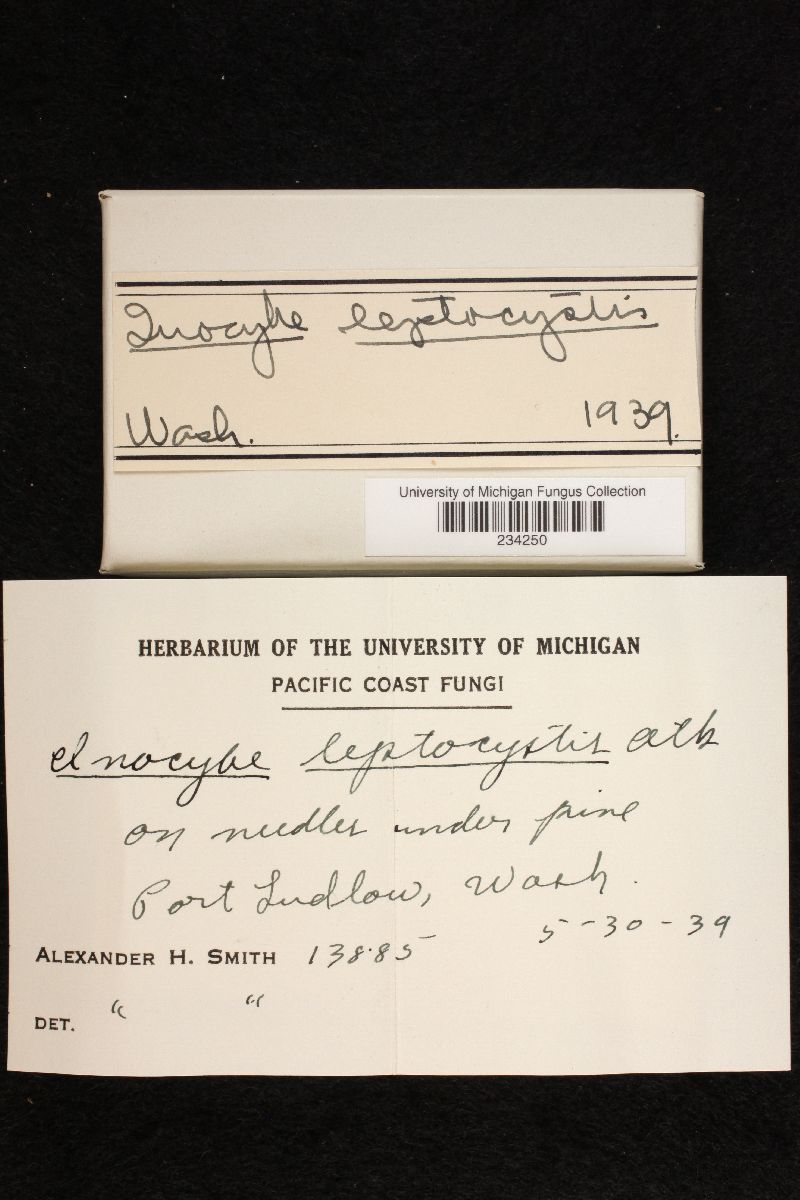 Inocybe leptocystis
Wash. 1939.
University of Michigan Fungus Collection
234250
HERBARIUM OF THE UNIVERSITY OF MICHIGAN
PACIFIC COAST FUNGI
Inocybe leptocystis Atk
on needles under pine
Port Ludlow, Wash.
5-30-39
ALEXANDER H. SMITH 13885
DET. " "